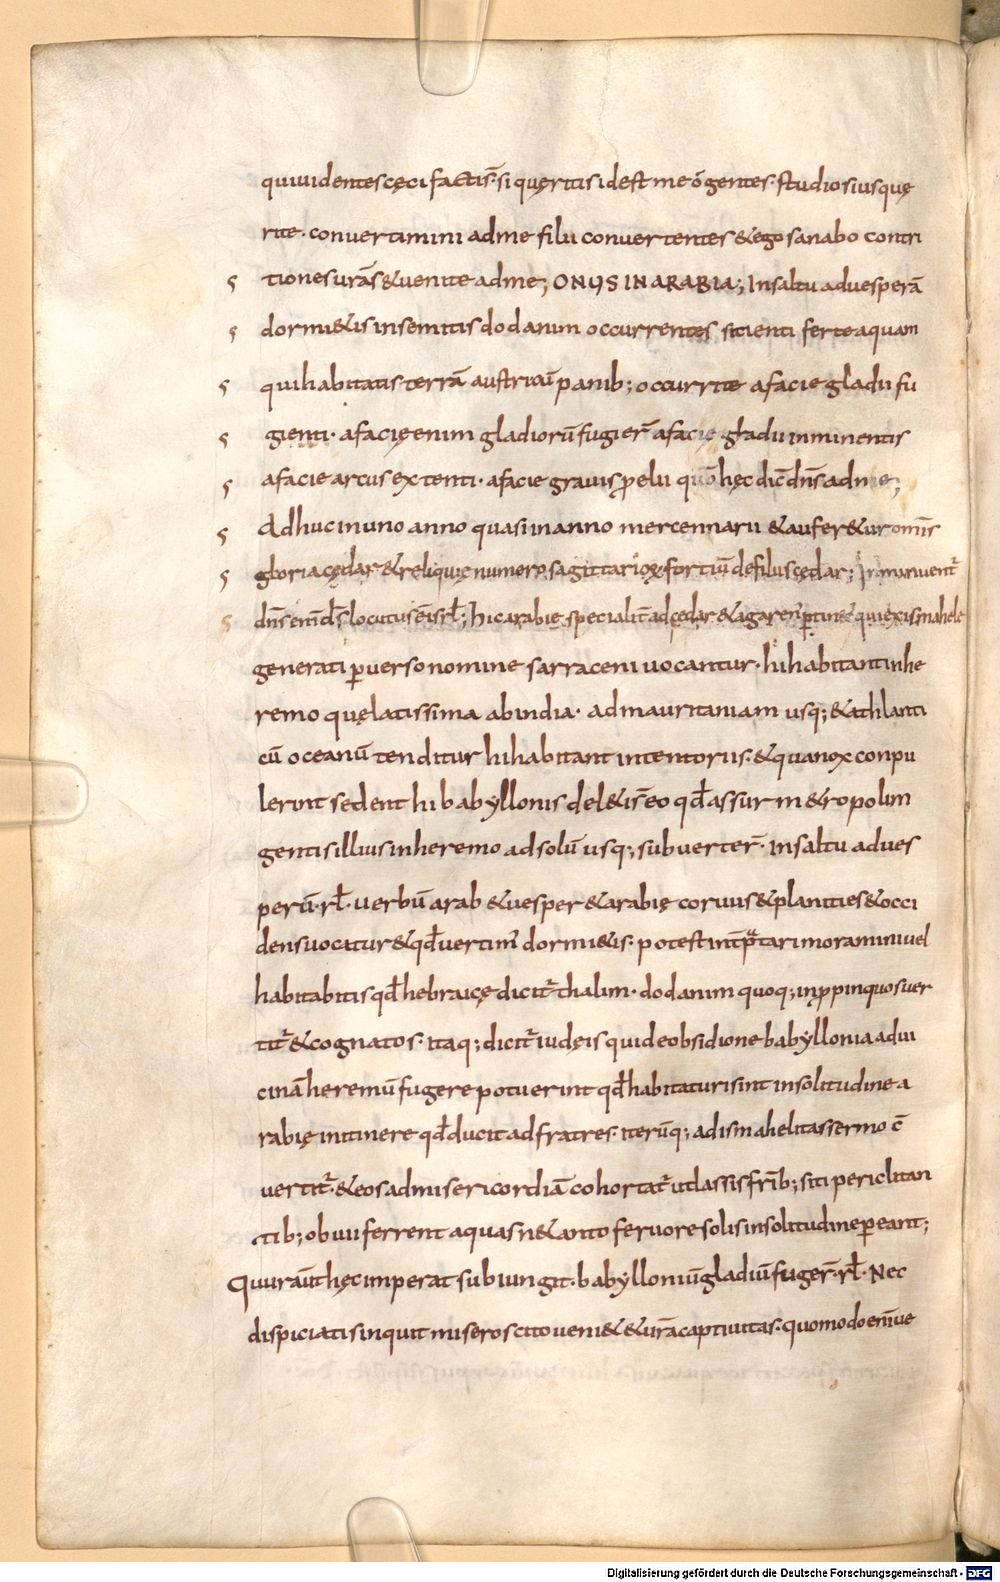 qui uidentes cęci facti s̄. si quęritis id est me o gentes. studiosius quę
rite. convertimini ad me filii convertentes & ego sanabo contri
tiones urās & uenite ad me; ONUS IN ARABIA; In saltu ad uesperā
dormi&is in semitis dodanim occurrentes sitienti ferte aquam
qui habitatis terrā austri cū panib; occurrite a facie gladii fu
gienti. a facię enim gladiorū fugier̄ a facie gladii inminentis
a facie arcus extenti. a facie gravis p̄elii quō hęc dic̄ dn̄s ad me;
Adhuc in uno anno quasi in anno mercennarii & aufer&ur omīs
gloria cędar & reliquię numero sagittarioꝝ fortiū de filiis cędar;
dn̄s enī ds̄ locutus ē isrł; Hic arabię specialit̄ ad cędar & agaren̄ ptin& qui ex ismahele
generati puerso nomine sarraceni uocantur. hi habitant in he
remo quę latissima ab india. ad mauritaniam usq; & athlanti
cū oceanū tenditur hi habitant in tentoriis. & qua nox conpu
lerint sedent hi babyllonis del&i s̄ eo qđ assur m&ropolim
gentis illius in heremo ad solū usq; subverter̄. In saltu ad ues
perū. rł. uerbū arab & uesper & arabię corvus & planities & occi
dens uocatur & qđ vertim̄ dormi&is. potest int̄ptari moramini uel
habitabitis qđ hebraicę dicit̄ thalim. dodanim quoq; in ppinquos uer
tit̄ & cognatos. Itaq; dicit̄ iudęis qui de obsidione babyllonia ad ui
cinā heremū fugere potuerint qđ habitaturi sint in solitudine a
rabię in itinere qđ ducit ad fratres. iterūq; ad ismahelitas sermo c̄
vertit̄. & eos ad misericordiā cohortat̄ ut lassis frīb; siti periclitan
tib; obuii ferrent aquas n& anto fervore solis in solitudine peant;
Qui urāut hęc imperat subiungit. babylloniū gladiū fuger̄. rł. Nec
dispiciatis inquit miseros cito veni& & urā captiuitas. quomodo enī ve
Digitalisierung gefördert durch die Deutsche Forschungsgemeinschaft - DFG